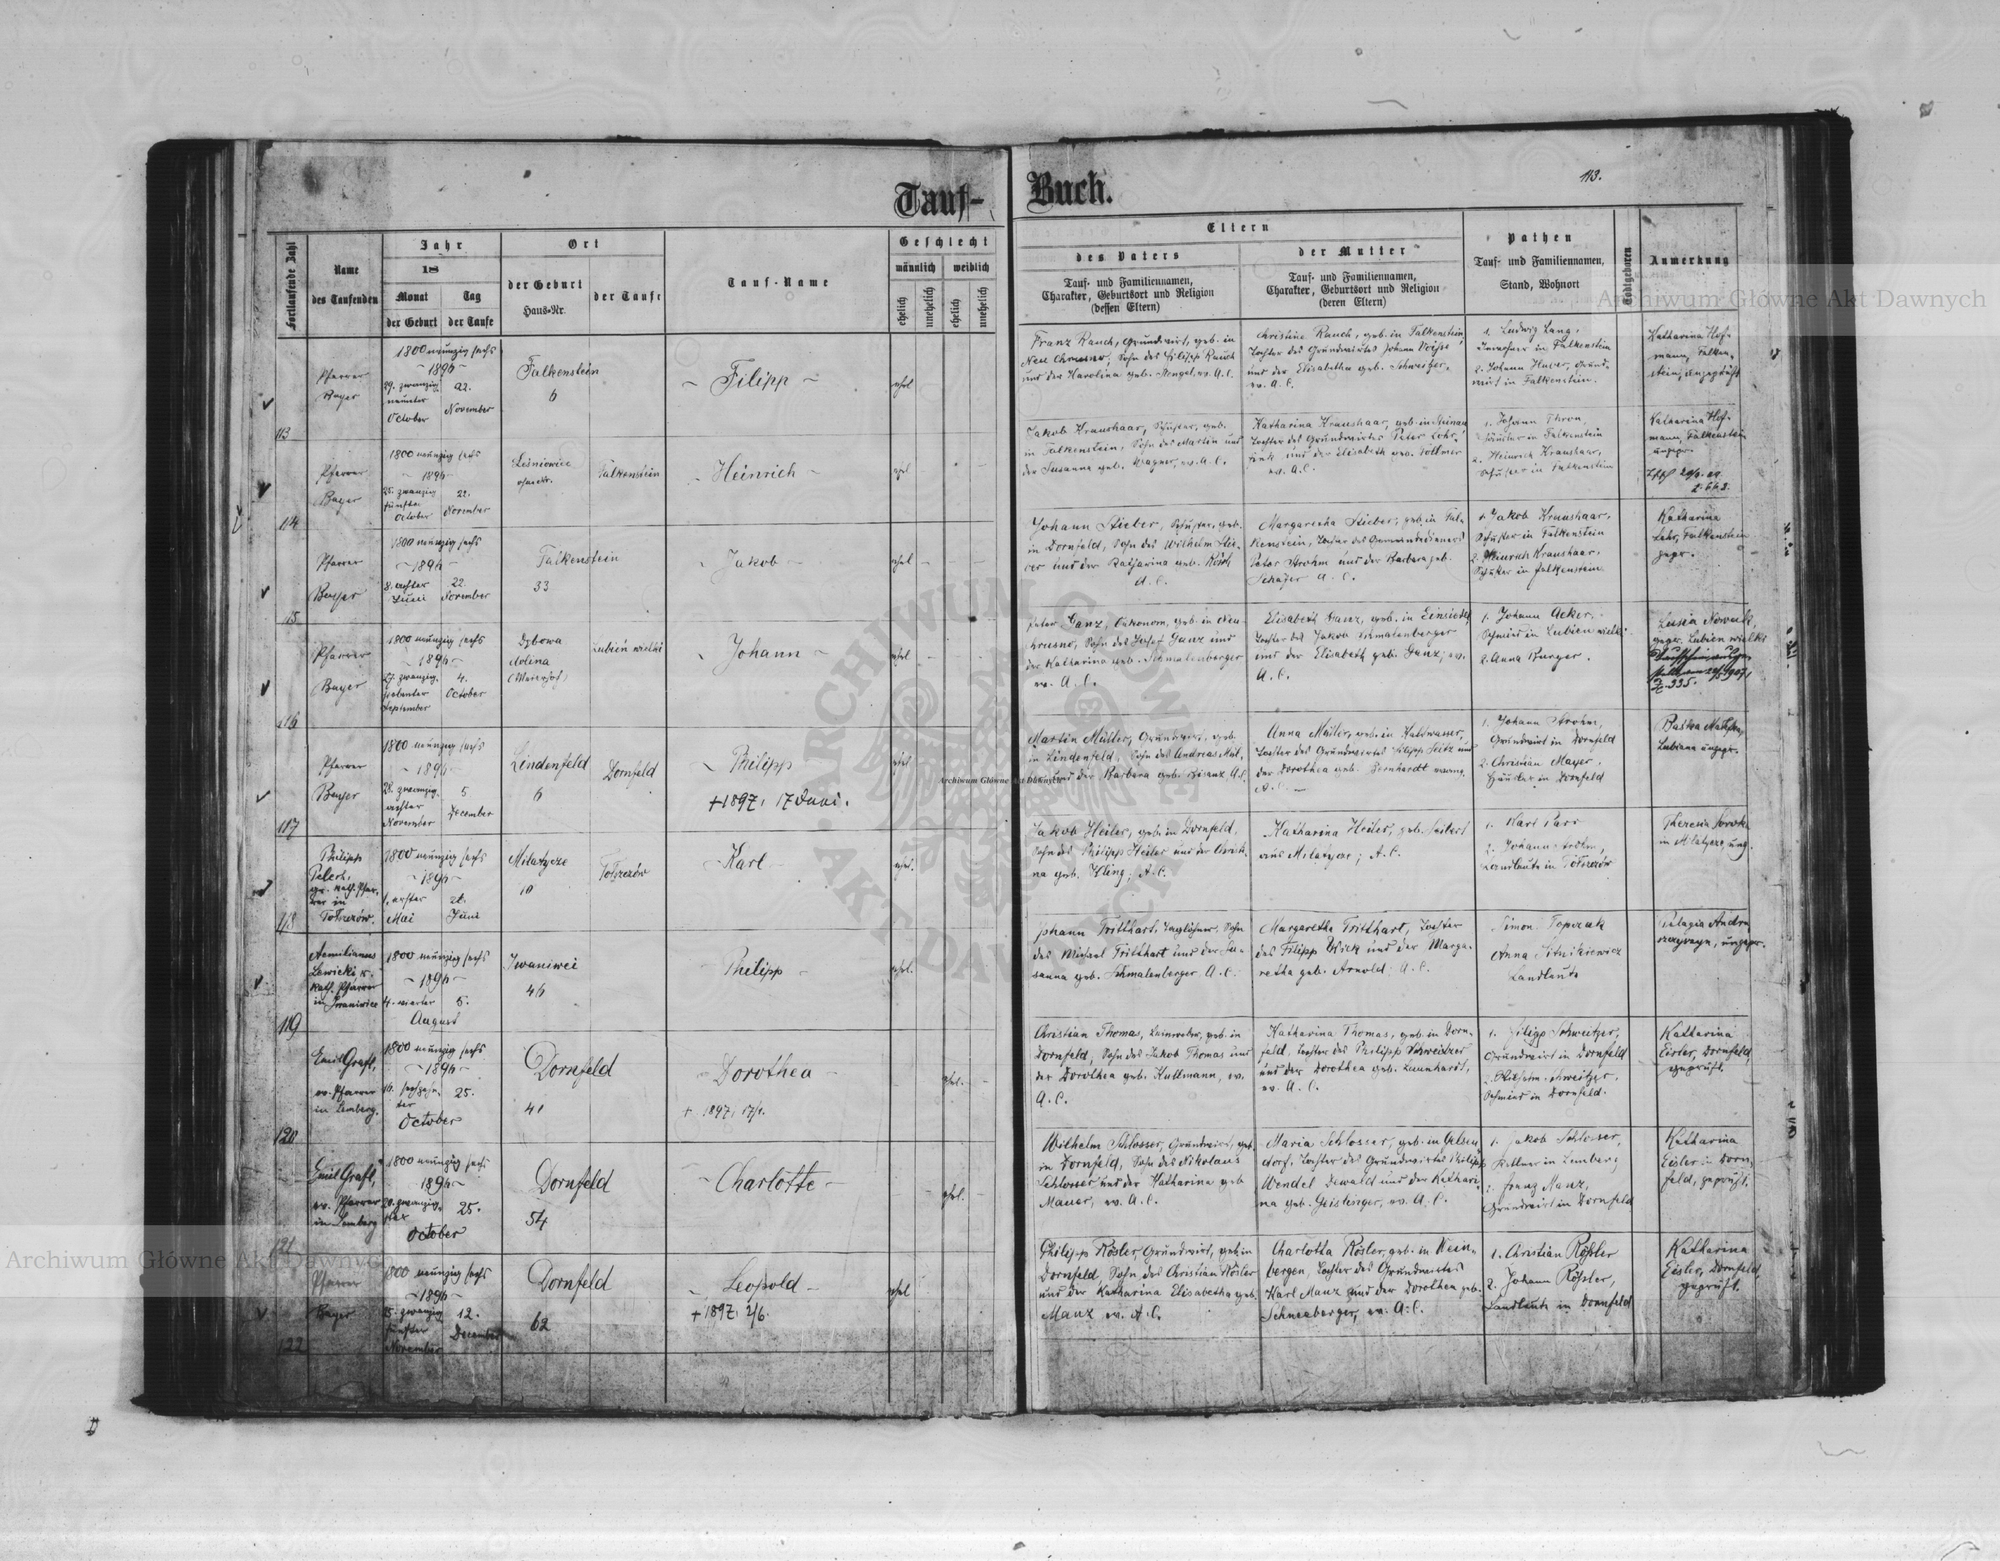 Tauf- Buch.
113.
Fortlaufende Zahl
Name
des Taufenden
Jahr
18
Monat
Tag
der Geburt
der Taufe
Ort
der Geburt
Haus-Nr.
der Taufe
Tauf-Name
Geschlecht
männlich
weiblich
ehelich
unehelich
ehelich
unehelich
Eltern
des Vaters
Tauf- und Familiennamen,
Charakter, Geburtsort und Religion
(dessen Eltern)
der Mutter
Tauf- und Familiennamen,
Charakter, Geburtsort und Religion
(deren Eltern)
Pathen
Tauf- und Familiennamen,
Stand, Wohnort
Todtgeboren
Anmerkung
113
Pfarrer
Bayer
1800 neunzig sechs
1896
29. zwanzig
neunter
October
22.
November
Falkenstein
6
Filipp
ehel
Franz Rauch, Grundwirt, geb. in
Neu Chrusno, Sohn des Filipp Rauch
und der Karolina geb. Mengel, ev. A. C.
Christine Rauch, geb. in Falkenstein,
Tochter des Grundwirtes Johann
und der Elisabetha geb. Schweitzer,
ev. A. C.
1. Ludwig Lang,
Inwohner in Falkenstein
2. Johann Huber, Grund-
wirt in Falkenstein.
Katharina Hof-
mann, Falken-
stein, ungeprüft
114
Pfarrer
Bayer
1800 neunzig sechs
1896
25. zwanzig
fünfter
October
22.
November
Leśniowice
Falkenstein
Heinrich
Jakob Kraushaar, Schuster, geb.
in Falkenstein, Sohn des Martin und
der Susanna geb. Wagner, ev. A. C.
Katharina Kraushaar, geb. in
Tochter des Grundwirtes Peter
und der Elisabeth geb.
ev. A. C.
1. Johann Thron,
Häusler in Falkenstein
2. Heinrich Kraushaar,
Schuster in Falkenstein
Katharina Hof-
mann, Falkenstein
ungepr.
115
Pfarrer
Bayer
1800 neunzig sechs
1896
8. achter
Juni
22.
November
Falkenstein
33
Jakob
ehel
Johann Stieber, Schuster, geb.
in Dornfeld, Sohn des Wilhelm Stie-
ber und der Katharina geb.
A. C.
Margaretha Stieber, geb. in Fal-
kenstein, Tochter des Gemeindedieners
Peter Strohm und der Barbara geb.
Schäfer A. C.
1. Jakob Kraushaar,
Schuster in Falkenstein
2. Heinrich Kraushaar,
Schuster in Falkenstein
Katharina
Lehr, Falkenstein
gepr.
116
Pfarrer
Bayer
1800 neunzig sechs
1896
27. zwanzig
siebenter
September
4.
October
Dąbowa
dolina
(Meierhof)
Lubień wielki
Johann
ehel
Peter Ganz, Oekonom, geb. in Neu-
chrusno, Sohn des Josef Ganz und
der Katharina geb. Schmalenberger
ev. A. C.
Elisabeth Ganz, geb. in Einsiedel,
Tochter des Jakob Schmalenberger
und der Elisabeth geb. Ganz, ev.
A. C.
1. Johann Acker,
Schmied in Lubien wielki
2. Anna Burger.
Lusia Nowack,
gepr. Lubien wielki
Z. 335.
117
Pfarrer
Bayer
1800 neunzig sechs
1896
28. zwanzig
achter
November
5
December
Lindenfeld
6
Dornfeld
Philipp
+ 1897, 17 Juni.
ehel
Martin Müller, Grundwirt, geb.
in Lindenfeld, Sohn des Andreas Mül-
und der Barbara geb. A. C.
Anna Müller, geb. in Kaltwasser,
Tochter des Grundwirtes Filipp Seitz und
der Dorothea geb. Bernhardt
A. C.
1. Johann Strohm,
Grundwirt in Dornfeld
2. Christian Mayer,
Häusler in Dornfeld
118
Philipp
Pelech,
gr. kath. Pfar-
rer in
Tołszczów.
1800 neunzig sechs
1896
1. erster
Mai
Juni
Milatycze
10
Tołszczów
Karl
ehel.
Jakob Heiler, geb. in Dornfeld,
Sohn des Philipp Heiler und der Christi-
na geb. Kling; A. C.
Katharina Heiler, geb. Seibert
aus Milatycze; A. C.
1. Karl Parr
2. Johann
Landleute in Tołszczów
Theresia
in Milatycze, ung.
119
Aemilianus
Lewicki,
kath. Pfarrer
in Iwaniwice
1800 neunzig sechs
1896
4. vierter
August
5.
Iwaniwci
46
Philipp
ehel.
Johann Tritthart, Taglöhner, Sohn
des Michael Tritthart und der Su-
sanna geb. Schmalenberger A. C.
Margaretha Tritthart, Tochter
des Filipp Wick und der Marga-
retha geb. Arnold; A. C.
Simon Topczuk
Anna Sitnikiewicz
Landleute
Pelagia Andru
ungepr.
120
Emil Graft,
ev. Pfarrer
in Lemberg.
1800 neunzig sechs
1896
16. sechzehn-
ter
October
25.
Dornfeld
41
Dorothea
+ 1897, 17/1.
ehel.
Christian Thomas, Leinweber, geb. in
Dornfeld, Sohn des Jakob Thomas und
der Dorothea geb. Kullmann, ev.
A. C.
Katharina Thomas, geb. in Dorn-
feld, Tochter des Philipp Schweitzer
und der Dorothea geb. Leonhardt,
ev. A. C.
1. Filipp Schweitzer,
Grundwirt in Dornfeld
2. Wilhelm Schweitzer,
Schmied in Dornfeld.
Katharina
Eisler, Dornfeld,
geprüft.
121
Emil Graft,
ev. Pfarrer
in Lemberg
1800 neunzig sechs
1896
20. zwanzig-
ster
October
25.
Dornfeld
54
Charlotte
ehel.
Wilhelm Schlosser, Grundwirt, geb.
in Dornfeld, Sohn des Nikolaus
Schlosser und der Katharina geb.
Mauer, ev. A. C.
Maria Schlosser, geb. in Ugelsen
dorf, Tochter des Grundwirtes Philipp
Wendel Dewald und der Kathari-
na geb. Geislinger, ev. A. C.
1. Jakob Schlosser,
Kellner in Lemberg
2. Franz Manz,
Grundwirt in Dornfeld
Katharina
Eisler in Dorn-
feld, geprüft.
122
Pfarrer
Bayer
1800 neunzig sechs
1896
25. zwanzig
fünfter
November
12.
December
Dornfeld
62
Leopold
+ 1897, 2/6.
ehel
Philipp Rösler, Grundwirt, geb. in
Dornfeld, Sohn des Christian Rösler
und der Katharina Elisabetha geb.
Manz ev. A. C.
Charlotta Rösler, geb. in Wein-
bergen, Tochter des Grundwirtes
Karl Manz und der Dorothea geb.
Schneeberger, ev. A. C.
1. Christian Rößler
2. Johann Rößler,
Landleute in Dornfeld
Katharina
Eisler, Dornfeld,
geprüft.
Archiwum Główne Akt Dawnych
Archiwum Główne Akt Dawnych
Archiwum Główne Akt Dawnych
ARCHIWUM GŁÓWNE AKT DAWNYCH